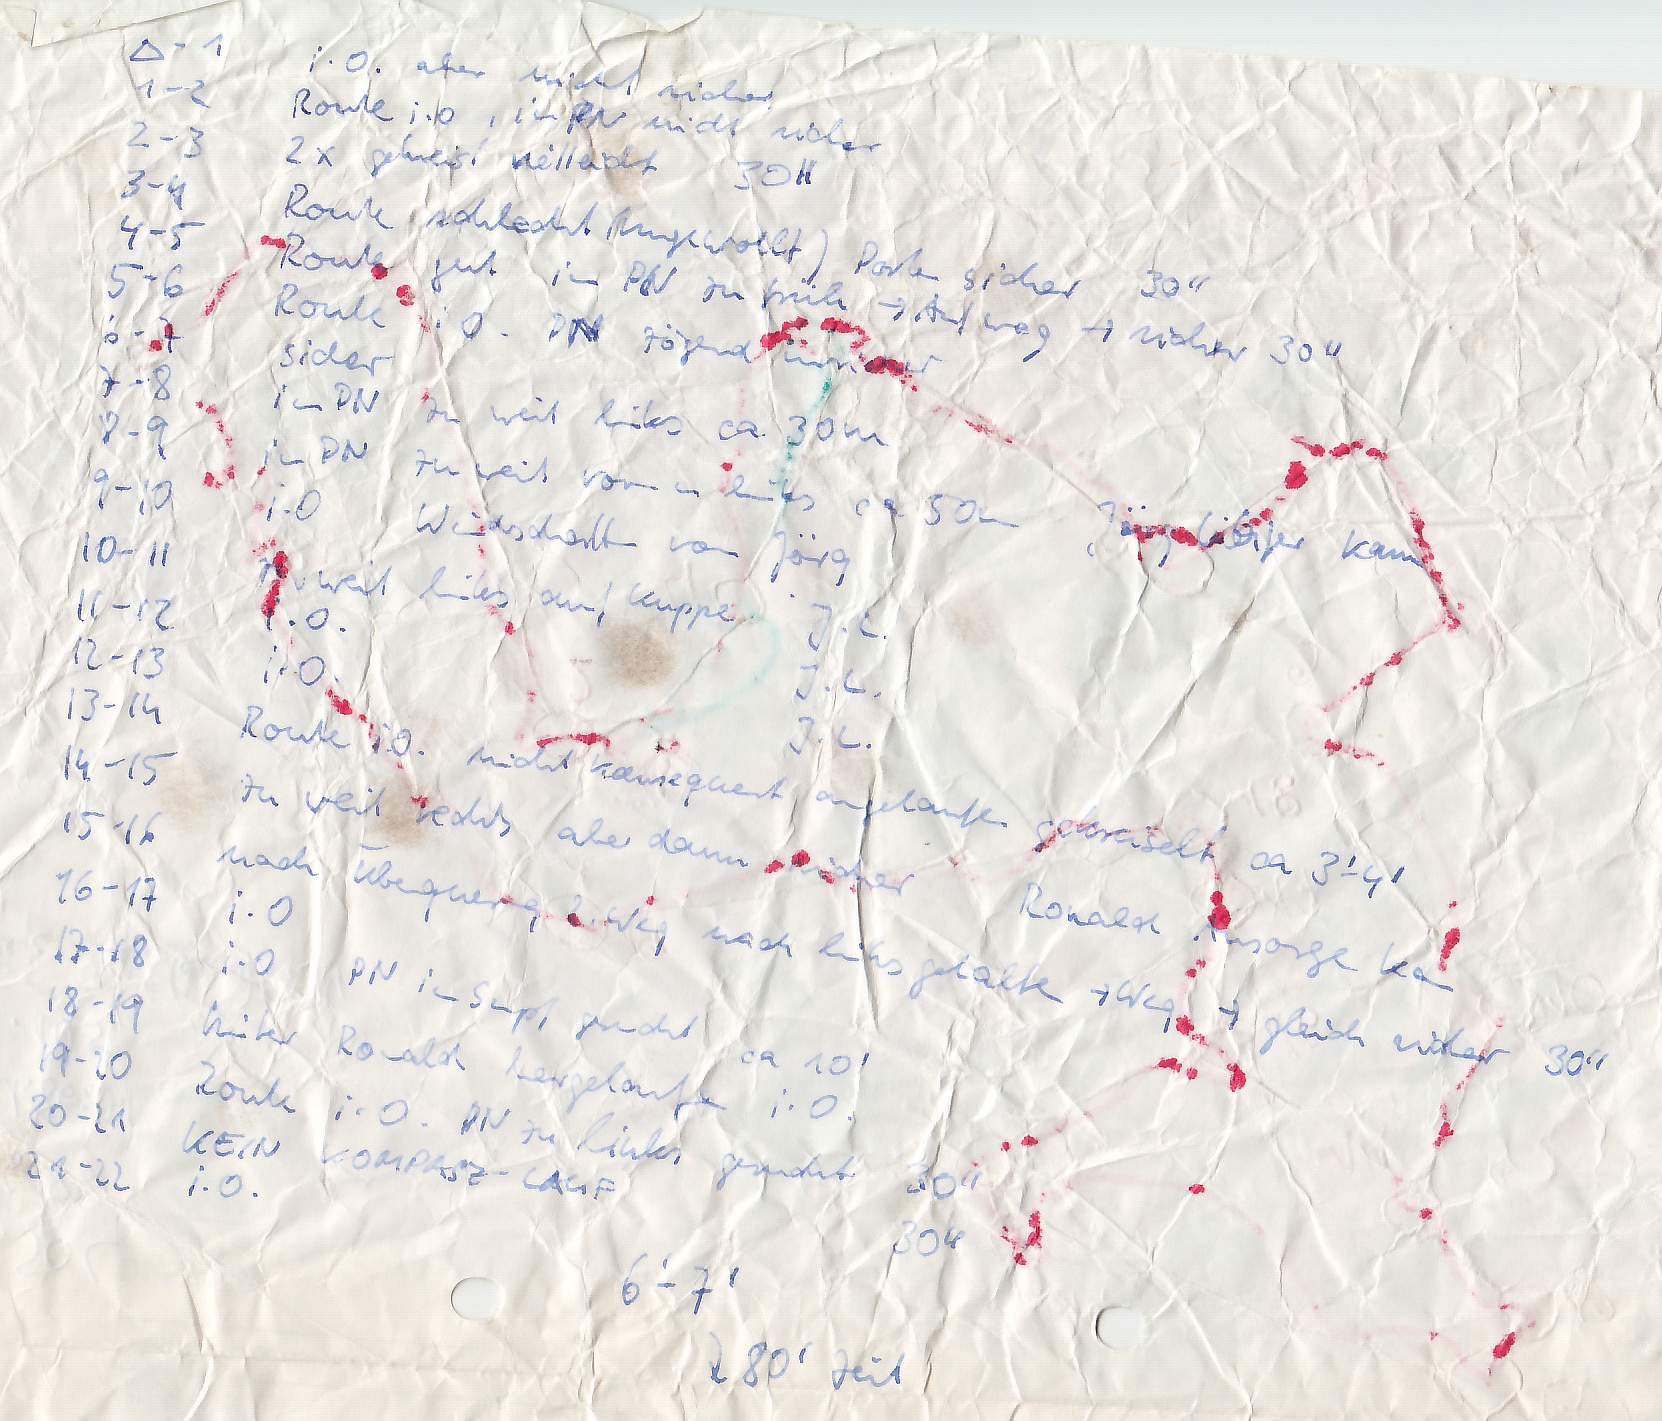 △-1 i.O. aber nicht sicher
1-2 Route i.O, im PN nicht sicher
2-3 2x gekreist vielleicht 30"
3-4 Route schlecht (umgewollt) Posten sicher 30"
4-5 Route gut im PN zu früh → Auf weg → sicher 30"
5-6 Route i.O. PN zögernd
6-7 sicher
7-8 im PN zu weit links ca. 30m
8-9 im PN zu weit vorn u links ca 50m Jörg kam
9-10 i.O Windschatten von Jörg
10-11 zu weit links auf Kuppe J.L.
11-12 i.O. J.L.
12-13 i.O. J.L.
13-14 Route i.O. nicht konsequent angelaufen gekreiselt ca 3'-4'
14-15 zu weit rechts aber dann sicher Ronald Ansorge kam
15-16 nach Überquerg 2. Weg nach links gehalten → Weg → gleich sicher 30"
16-17 i.O
17-18 i.O PN im Sumpf gesucht ca 10'
18-19 hinter Ronald hergelaufen i.O.
19-20 Route i.O. PN zu links gesucht 30"
20-21 KEIN KOMPASZ-LAUF 30"
21-22 i.O.
6'-7'
80' Zeit